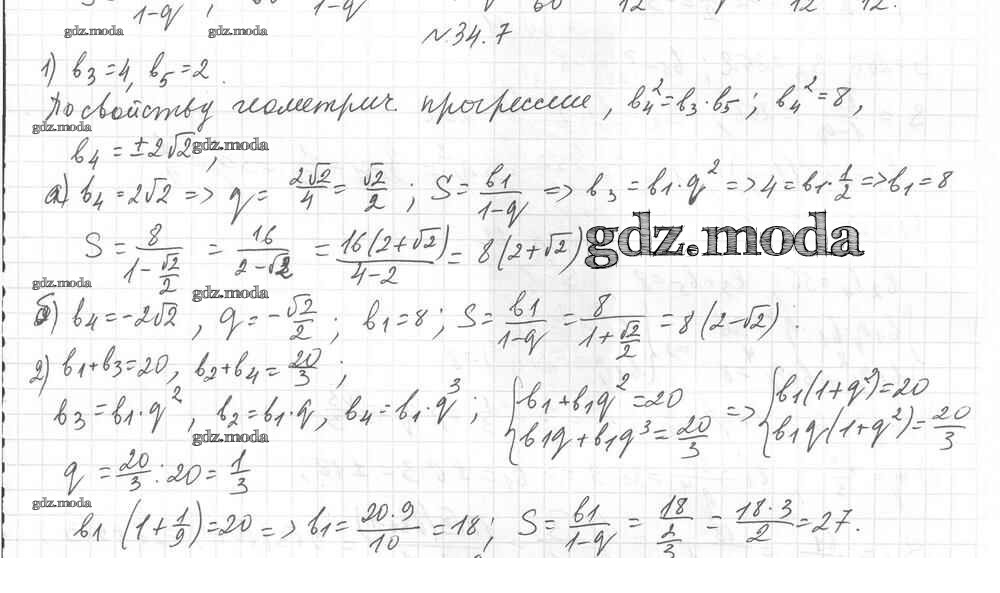 1-q 1-q 60 12 12 12.
gdz.moda gdz.moda
№34.7
1) b₃=4, b₅=2.
По свойству геометрич. прогрессии, b₄²=b₃·b₅; b₄²=8,
gdz.moda
b₄=±2√2, gdz.moda
а) b₄=2√2 => q= 2√2/4 = √2/2; S= b₁/(1-q) => b₃=b₁·q² => 4=b₁·1/2 => b₁=8
S= 8/(1-√2/2) = 16/(2-√2) = 16(2+√2)/(4-2) = 8(2+√2) gdz.moda
gdz.moda gdz.moda
б) b₄=-2√2, q=-√2/2; b₁=8; S= b₁/(1-q) = 8/(1+√2/2) = 8(2-√2).
2) b₁+b₃=20, b₂+b₄=20/3;
b₃=b₁·q², b₂=b₁·q, b₄=b₁·q³; { b₁+b₁q²=20 b₁q+b₁q³=20/3 => { b₁(1+q²)=20 b₁q(1+q²)=20/3
gdz.moda
q=20/3:20=1/3
gdz.moda
b₁(1+1/9)=20 => b₁= 20·9/10 =18; S= b₁/(1-q) = 18/(2/3) = 18·3/2 =27.